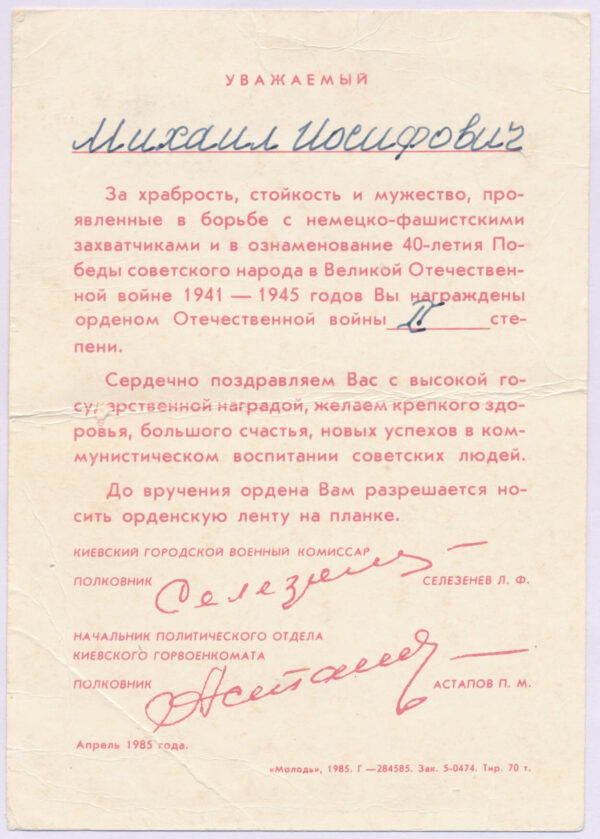 УВАЖАЕМЫЙ
Михаил Иосифович
За храбрость, стойкость и мужество, про-
явленные в борьбе с немецко-фашистскими
захватчиками и в ознаменование 40-летия По-
беды советского народа в Великой Отечествен-
ной войне 1941 — 1945 годов Вы награждены
орденом Отечественной войны II сте-
пени.
Сердечно поздравляем Вас с высокой го-
сударственной наградой, желаем крепкого здо-
ровья, большого счастья, новых успехов в ком-
мунистическом воспитании советских людей.
До вручения ордена Вам разрешается но-
сить орденскую ленту на планке.
КИЕВСКИЙ ГОРОДСКОЙ ВОЕННЫЙ КОМИССАР
ПОЛКОВНИК Селезнев СЕЛЕЗЕНЕВ Л. Ф.
НАЧАЛЬНИК ПОЛИТИЧЕСКОГО ОТДЕЛА
КИЕВСКОГО ГОРВОЕНКОМАТА
ПОЛКОВНИК Астапов АСТАПОВ П. М.
Апрель 1985 года.
«Молодь», 1985. Г —284585. Зак. 5-0474. Тир. 70 т.